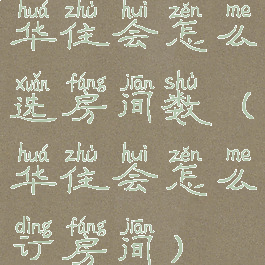 huá zhù huì zěn me
华住会怎么
xuǎn fáng jiān shù
选房间数（
huá zhù huì zěn me
华住会怎么
dìng fáng jiān
订房间）